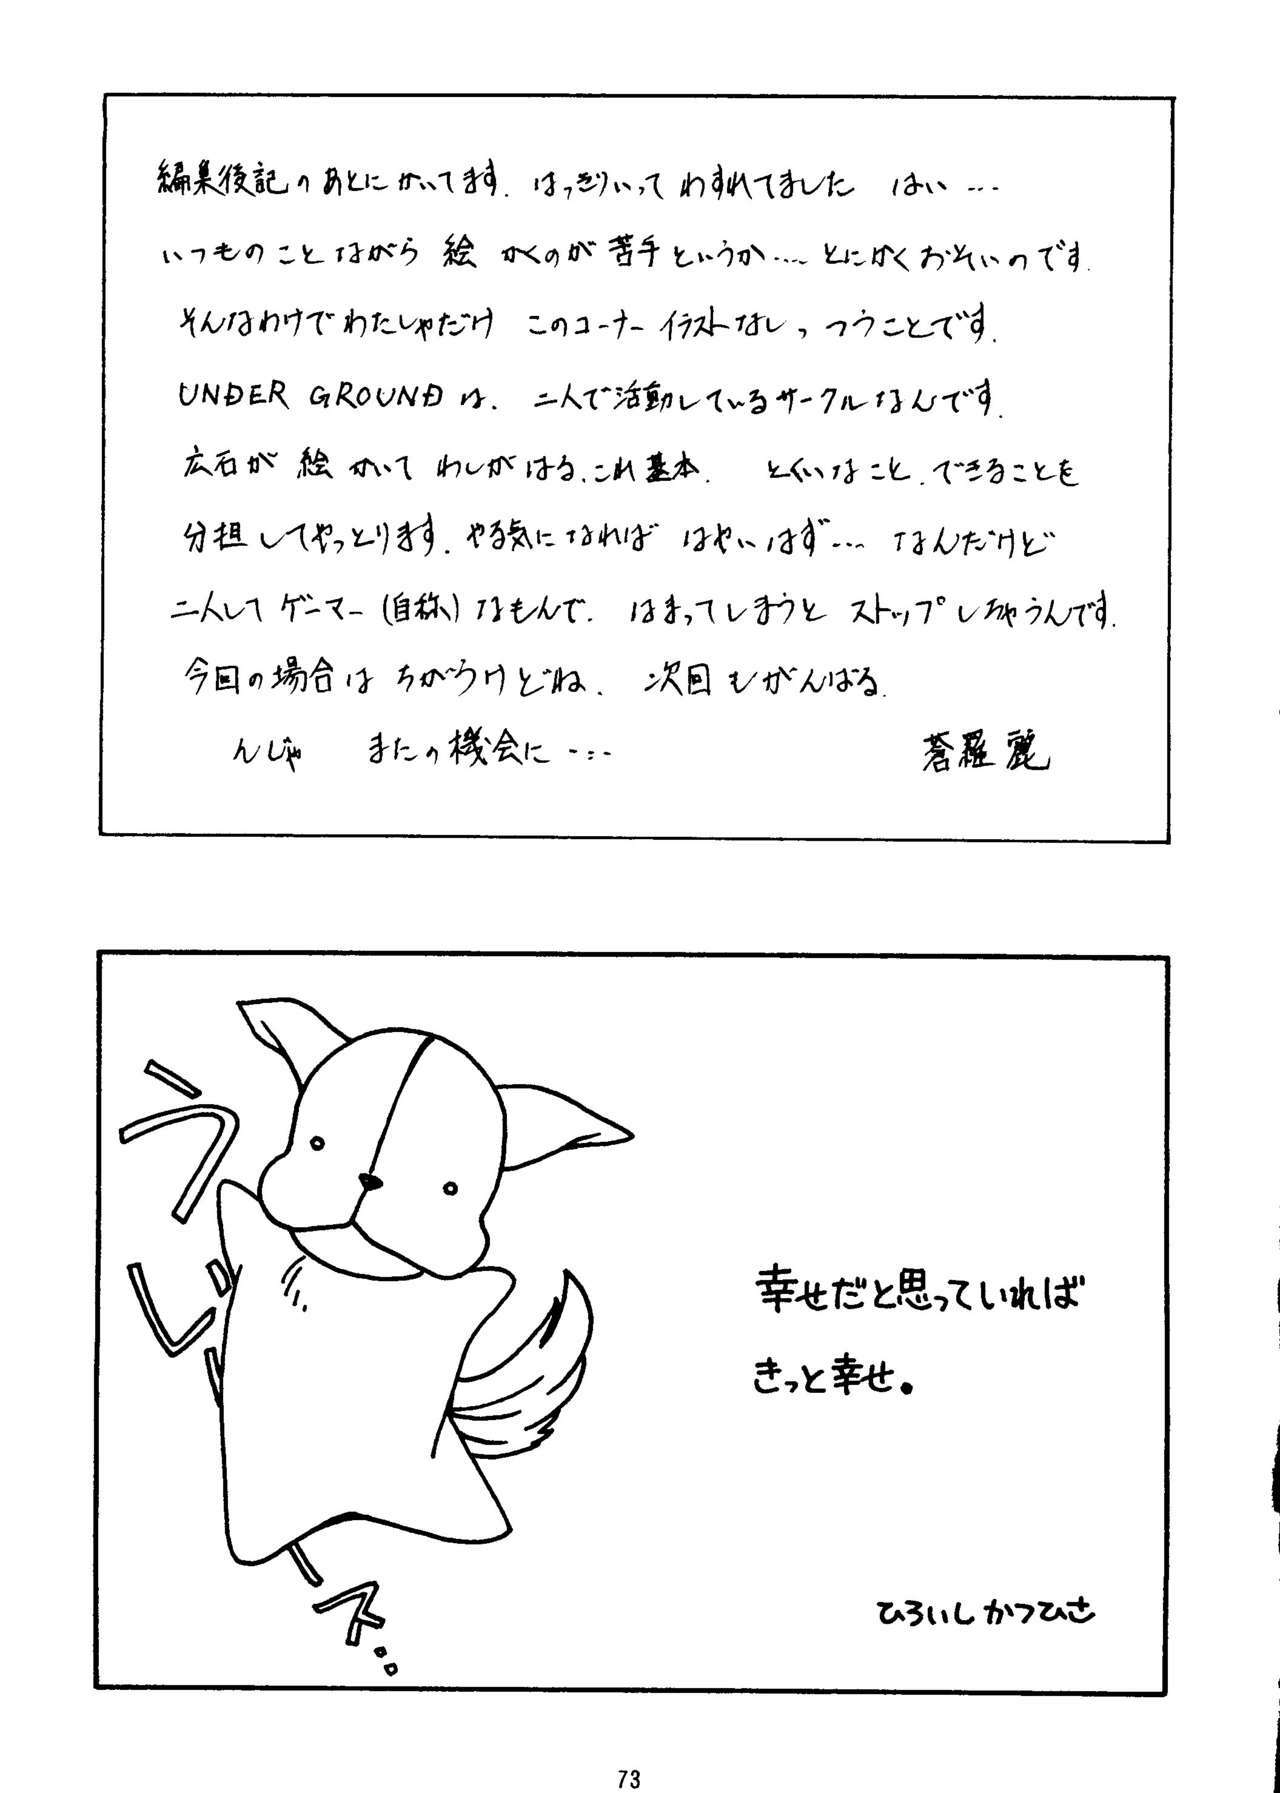 編集後記のあとにかいてます. はっきりいって わすれてました はい…
いつものことながら 絵 かくのが苦手というか…. とにかくおそいのです.
そんなわけでわたしゃだけ このコーナー イラストなしっつうことです.
UNDER GROUNDは、二人で活動しているサークルなんです.
広石が 絵 かいて わしがはる、これ基本. とくいなこと、できることを
分担してやっとります. やる気になれば はやいはず… なんだけど
二人して ゲーマー(自称)なもんで. はまってしまうと ストップしちゃうんです.
今回の場合は ちがうけどね、 次回もがんばる.
んじゃ またの機会に…
蒼羅 麗
幸せだと思っていれば
きっと幸せ。
ひろいしかつひさ
73